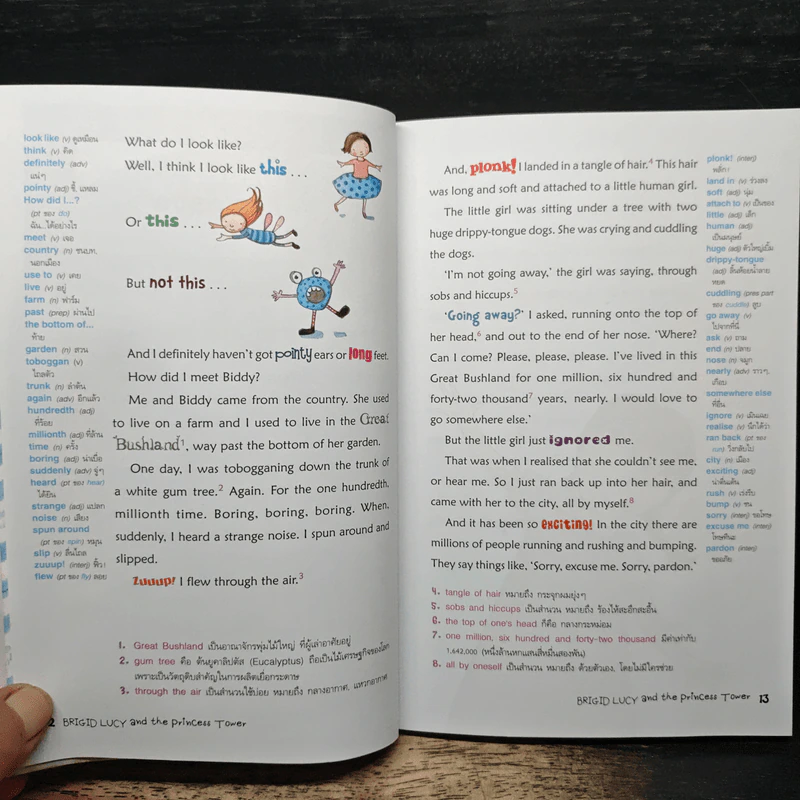 look like (v) ดูเหมือน
think (v) คิด
definitely (adv)
แน่ๆ
pointy (adj) ชี้, แหลม
How did I...?
(pt ของ do)
ฉัน...ได้อย่างไร
meet (v) เจอ
country (n) ชนบท,
นอกเมือง
use to (v) เคย
live (v) อยู่
farm (n) ฟาร์ม
past (prep) ผ่านไป
the bottom of...
ท้าย
garden (n) สวน
toboggan (v)
ไถลตัว
trunk (n) ลำต้น
again (adv) อีกแล้ว
hundredth (adj)
ที่ร้อย
millionth (adj) ที่ล้าน
time (n) ครั้ง
boring (adj) น่าเบื่อ
suddenly (adv) จู่ๆ
heard (pt ของ hear)
ได้ยิน
strange (adj) แปลก
noise (n) เสียง
spun around
(pt ของ spin) หมุน
slip (v) ลื่นไถล
zuuup! (interj) ฟิ้ว!
flew (pt ของ fly) ลอย
What do I look like?
Well, I think I look like this ...
Or this ...
But not this ...
And I definitely haven't got pointy ears or long feet.
How did I meet Biddy?
Me and Biddy came from the country. She used
to live on a farm and I used to live in the Great
Bushland1, way past the bottom of her garden.
One day, I was tobogganing down the trunk of
a white gum tree.2 Again. For the one hundredth,
millionth time. Boring, boring, boring. When,
suddenly, I heard a strange noise. I spun around and
slipped.
Zuuup! I flew through the air.3
1. Great Bushland เป็นอาณาจักรพุ่มไม้ใหญ่ ที่ผู้เล่าอาศัยอยู่
2. gum tree คือ ต้นยูคาลิปตัส (Eucalyptus) ถือเป็นไม้เศรษฐกิจของโลก
เพราะเป็นวัตถุดิบสำคัญในการผลิตเยื่อกระดาษ
3. through the air เป็นสำนวนใช้บ่อย หมายถึง กลางอากาศ, แหวกอากาศ
2 BRIGID LUCY and the Princess Tower
And, plonk! I landed in a tangle of hair.4 This hair
was long and soft and attached to a little human girl.
The little girl was sitting under a tree with two
huge drippy-tongue dogs. She was crying and cuddling
the dogs.
'I'm not going away,' the girl was saying, through
sobs and hiccups.5
'Going away?' I asked, running onto the top of
her head,6 and out to the end of her nose. 'Where?
Can I come? Please, please, please. I've lived in this
Great Bushland for one million, six hundred and
forty-two thousand7 years, nearly. I would love to
go somewhere else.'
But the little girl just ignored me.
That was when I realised that she couldn't see me,
or hear me. So I just ran back up into her hair, and
came with her to the city, all by myself.8
And it has been so exciting! In the city there are
millions of people running and rushing and bumping.
They say things like, 'Sorry, excuse me. Sorry, pardon.'
4. tangle of hair หมายถึง กระจุกผมยุ่งๆ
5. sobs and hiccups เป็นสำนวน หมายถึง ร้องไห้สะอึกสะอื้น
6. the top of one's head ก็คือ กลางกระหม่อม
7. one million, six hundred and forty-two thousand มีค่าเท่ากับ
1,642,000 (หนึ่งล้านหกแสนสี่หมื่นสองพัน)
8. all by oneself เป็นสำนวน หมายถึง ด้วยตัวเอง, โดยไม่มีใครช่วย
BRIGID LUCY and the Princess Tower 13
plonk! (interj)
พลั่ก!
land in (v) ร่วงลง
soft (adj) นุ่ม
attach to (v) เป็นของ
little (adj) เล็ก
human (adj)
เป็นมนุษย์
huge (adj) ตัวใหญ่เบิ้ม
drippy-tongue
(adj) ลิ้นห้อยน้ำลาย
หยด
cuddling (pres part
ของ cuddle) กอด
go away (v)
ไปจากที่นี่
ask (v) ถาม
end (n) ปลาย
nose (n) จมูก
nearly (adv) ราวๆ,
เกือบ
somewhere else
ที่อื่น
ignore (v) เมินเฉย
realise (v) นึกได้ว่า
ran back (pt ของ
run) วิ่งกลับไป
city (n) เมือง
exciting (adj)
น่าตื่นเต้น
rush (v) เร่งรีบ
bump (v) ชน
sorry (interj) ขอโทษ
excuse me (interj)
โทษทีนะ
pardon (interj)
ขออภัย